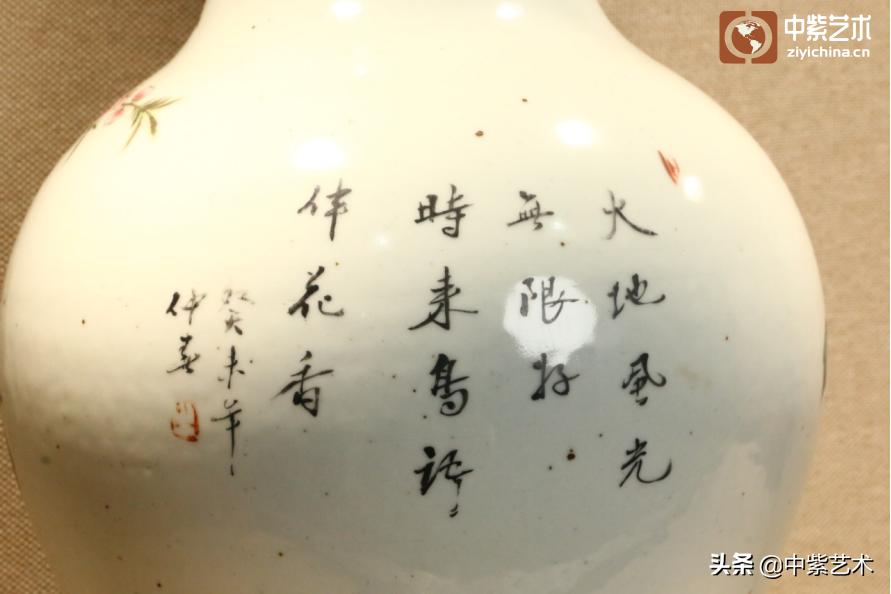 火地風光
無限好
時来鳥語
伴花香
癸未年
仲
中紫艺术
ziyichina.cn
头条 @中紫艺术